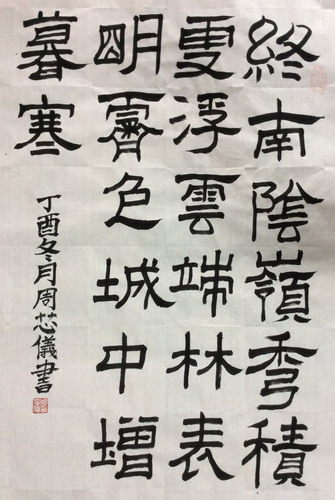 終南陰嶺秀積
雪浮雲端林表
朙霽色城中增
暮寒
丁酉冬月周芯儀書